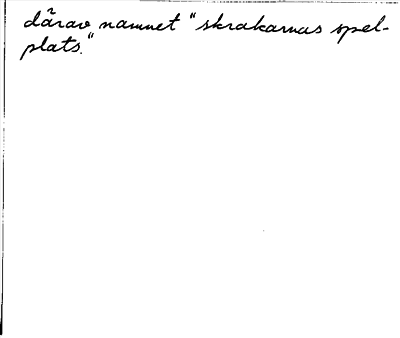 därav namnet "skrakarnas spel-
plats."